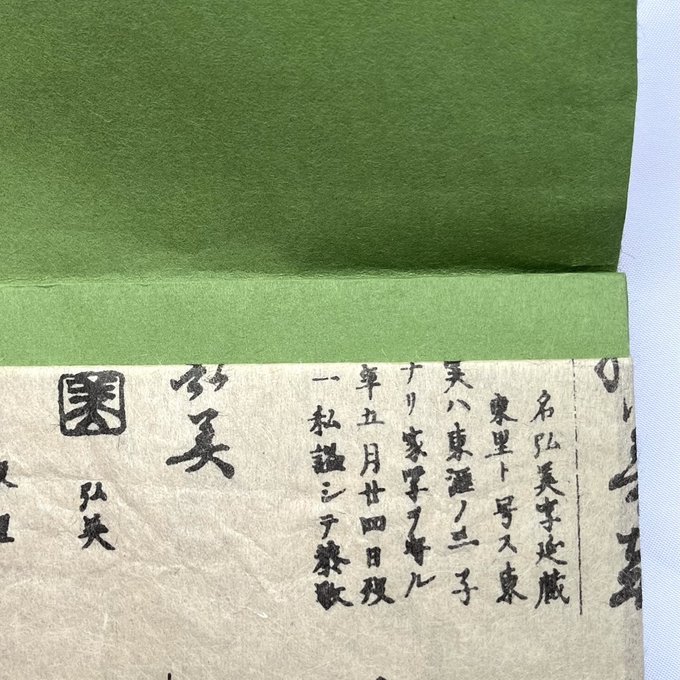 名弘美字延蔵
東里ト号ス東
涯ノ 子
ナリ家学ヲ守ル
年五月廿四日歿
一私謚シテ恭敬
弘美
弘美